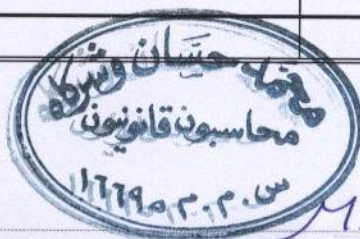 محمد حسان وشركاه
محاسبون قانونيون
س.م.م ١٦٦٩٥